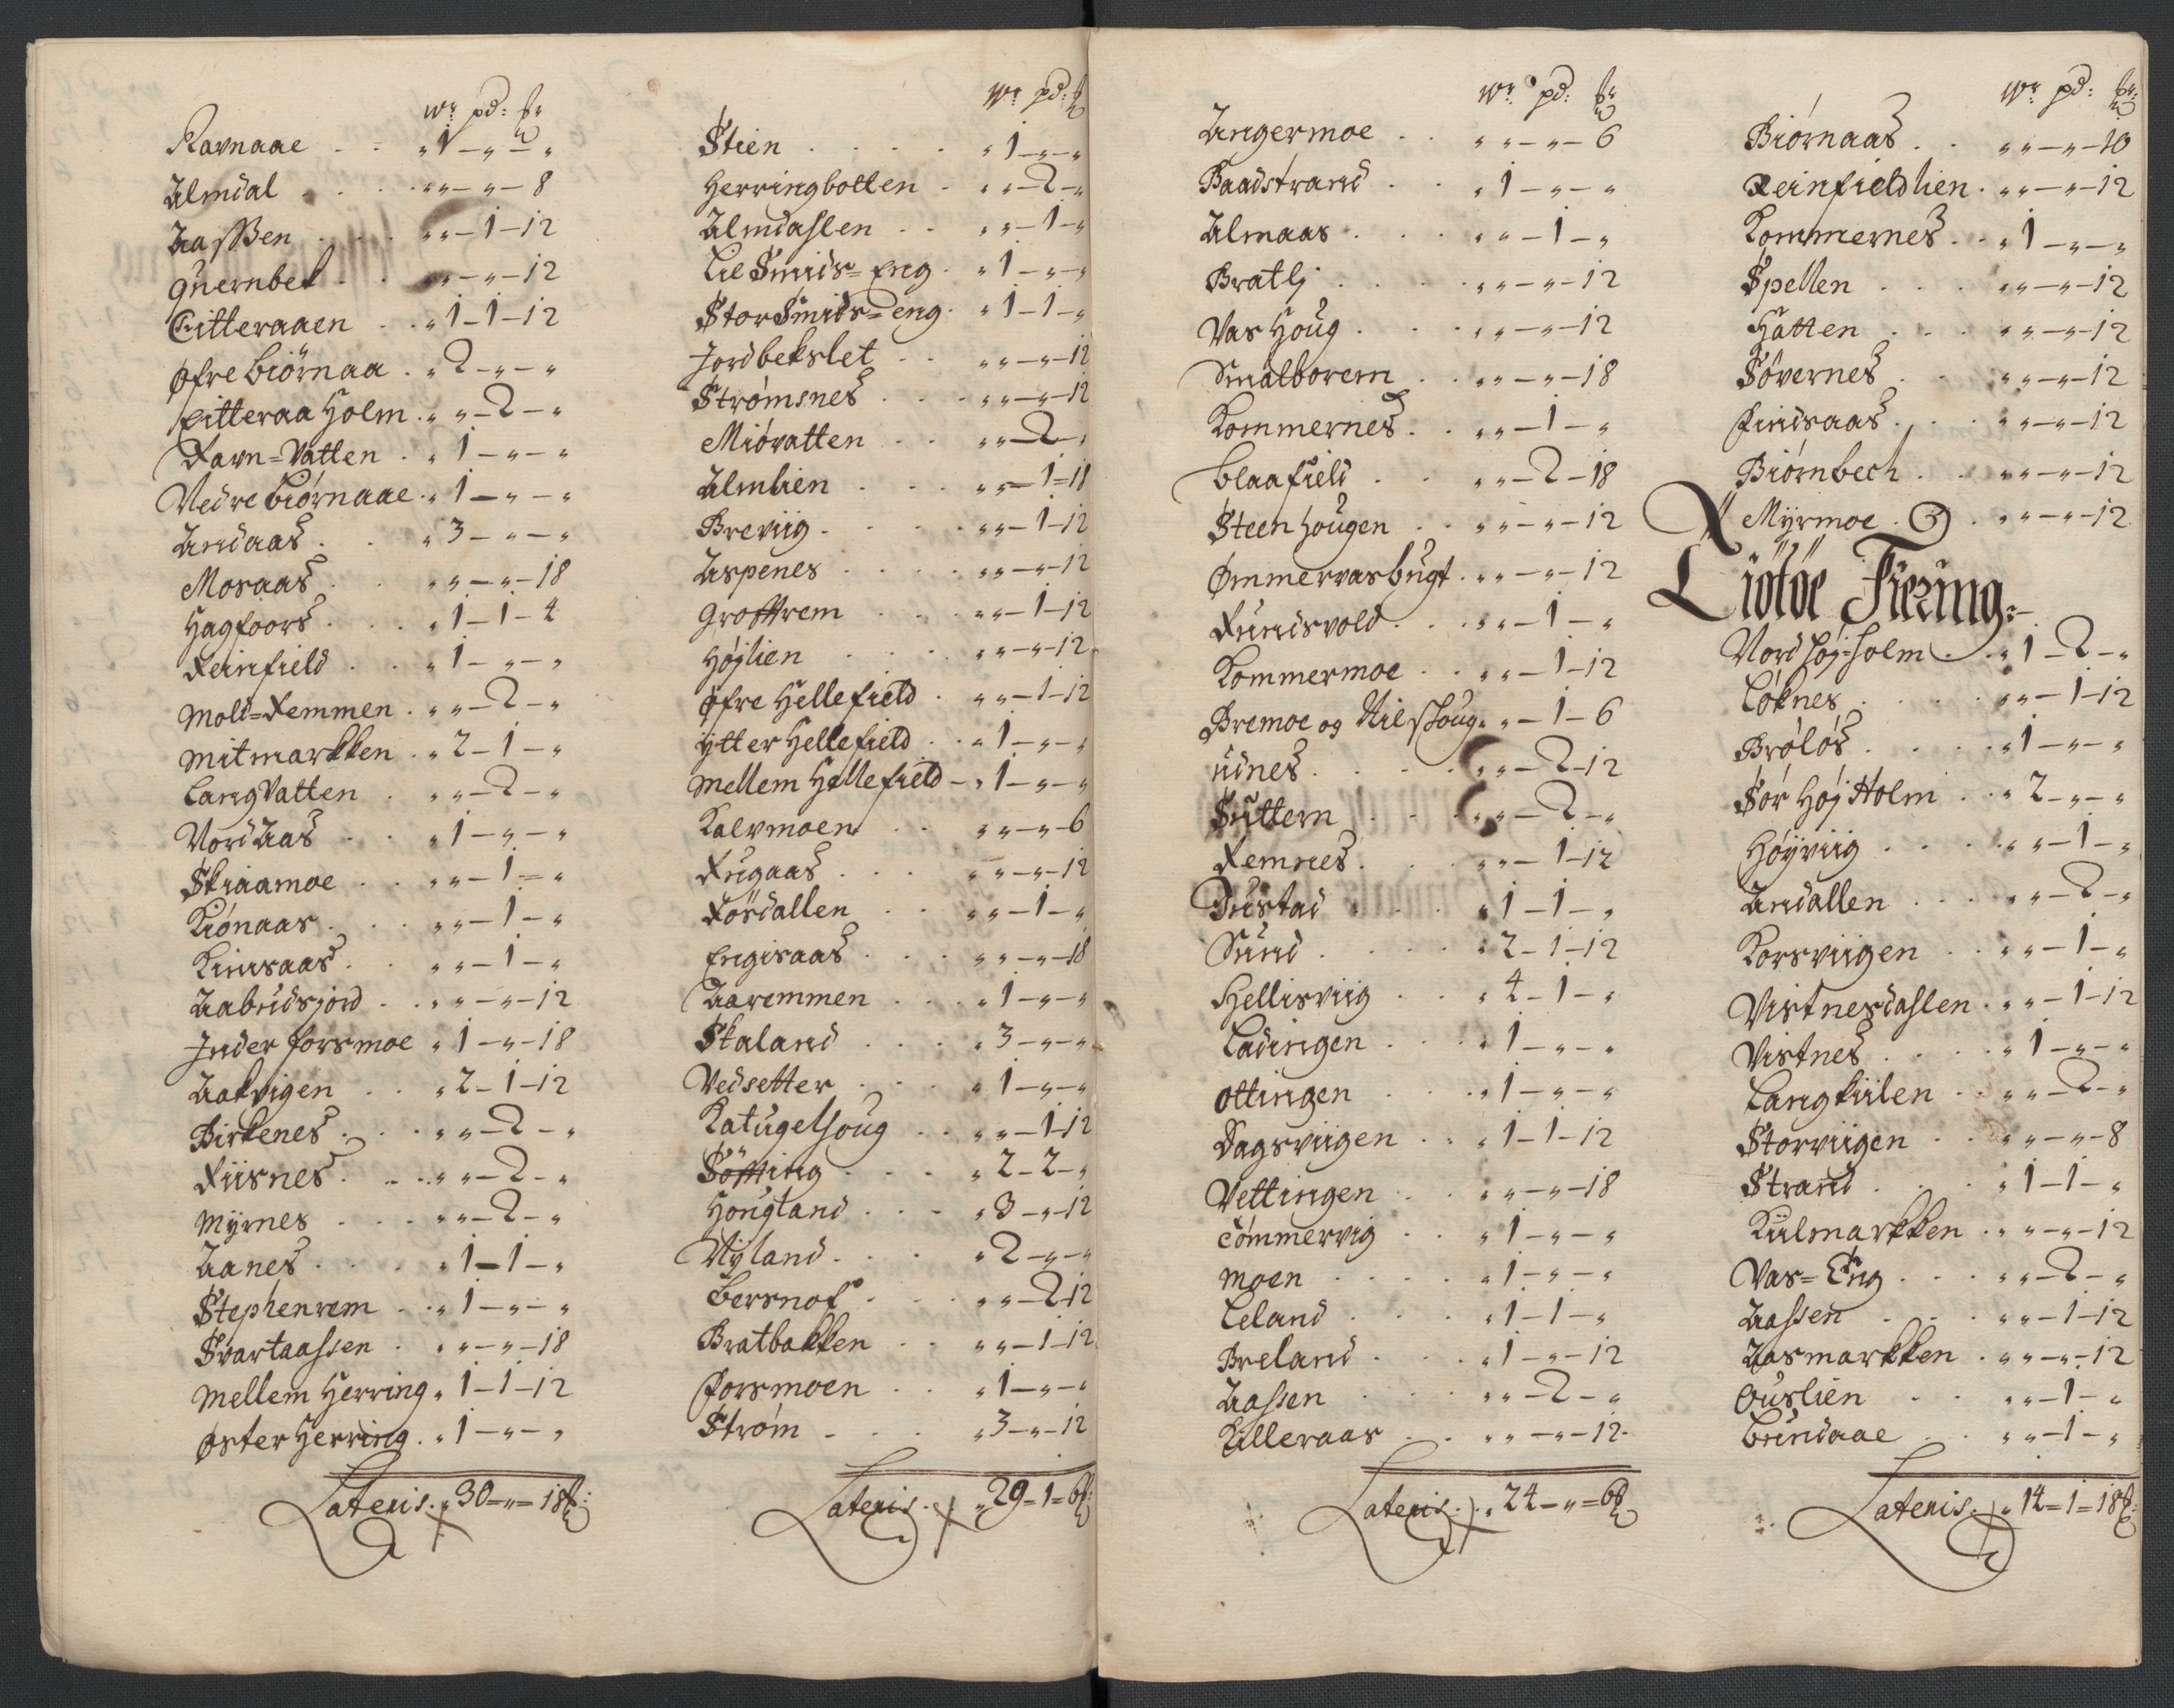 Wr pd: ℔
Ravnaae . . „ 1 – „ – „
Almdal . . . „ „ – „ – 8
Aassen . . . „ „ – 1 – 12
Quernbek . . „ „ – „ – 12
Citteraaen . . „ 1 – 1 – 12
Øfre Biörnaa . „ 2 – „ – „
Citteraa Holm . „ „ – 2 – „
Ravn=Vatten . „ 1 – „ – „
Nedre Biörnaae . „ 1 – „ – „
Andaas . . „ 3 – „ – „
Mosaas . . „ „ – „ – 18
Hagfoors . . „ 1 – 1 – 4
Reinfield . . „ 1 – „ – „
Mold=Remmen . „ „ – 2 – „
Mitmarkken . „ 2 – 1 – „
Lang Vatten . „ „ – 2 – „
Nord Aas . . „ 1 – „ – „
Skiaamoe . . „ „ – 1 – „
Kiónaas . . . „ „ – 1 – „
Kinsaas . . „ „ – 1 – „
Aabudsjord . . „ „ – „ – 12
Inder forsmoe „ 1 – „ – 18
Aakvigen . . „ 2 – 1 – 12
Birkenes . . . „ „ – 2 – „
Riisnes . . . „ „ – 2 – „
Myrnes . . . „ „ – 2 – „
Aanes . . . „ 1 – 1 – „
Stephenrem . . „ 1 – „ – „
Svartaassen . „ „ – „ – 18
Mellem Herring „ 1 – 1 – 12
Øster Herring . „ 1 – „ – „
Lateris . „ 30 = „ = 18 ℔:
Wr pd: ℔
Stien . . . . „ 1 – „ – „
Herringbotten . „ „ – 2 – „
Almdahlen . . „ „ – 1 – „
Lil Smids=Eng . „ 1 – „ – „
Stor Smids=Eng . „ 1 – 1 – „
Jordbekslet . . „ „ – „ – 12
Strømsnes . . . „ „ – „ – 12
Mióvatten . . „ „ – 2 – „
Almlien . . . „ „ – 1 – 18
Breviig . . . . „ „ – 1 – 12
Aspenes . . . . „ „ – „ – 12
Grofftrem . . . „ „ – 1 – 12
Højlien . . . „ „ – „ – 12
Øfre Hellefield . „ „ – 1 – 12
Ytter Hellefield . . „ 1 – „ – „
Mellem Hellefield – „ 1 – „ – „
Kalvmoen . . „ „ – „ – 6
Rugaas . . . „ „ – „ – 12
Rösdallen . . „ „ – 1 – „
Engisaas . . . „ „ – „ – 18
Aaremmen . . . „ 1 – „ – „
Skaland . . . „ 3 – „ – „
Vedsetter . . . „ 1 – „ – „
Katugelhoug . . „ „ – 1 – 12
Söffting . . . „ 2 – 2 – „
Hougland . . . „ 3 – „ – 12
Nyland . . . „ 2 – „ – „
Bersnof . . . „ „ – 2 – 12
Bratbakken . . „ „ – 1 – 12
Forsmoen . . „ 1 – „ – „
Strøm . . . „ 3 – „ – 12
Lateris . „ 29 = 1 = 6 ℔:
Wr pd: ℔
Angermoe . . „ „ – „ – 6
Baadstrand . . „ 1 – „ – „
Almaas . . . „ „ – 1 – „
Bratlj . . . . „ „ – „ – 12
Vas Houg . . . „ „ – „ – 12
Smalborem . . „ „ – „ – 18
Kommernes . . „ „ – 1 – „
Blaafield . . „ „ – 2 – 18
Steenhougen . . „ „ – „ – 12
Ømmervasbugt . „ „ – „ – 12
Rundsvold . . . „ „ – 1 – „
Kommermoe . . „ „ – 1 – 12
Bremoe og Nilshoug . „ „ – 1 – 6
Udnes . . . . „ „ – 2 – 12
Suttern . . . „ „ – 2 – „
Remnes . . . „ „ – 1 – 12
Bustad . . . „ 1 – 1 – „
Sund . . . . „ 2 – 1 – 12
Hellisviig . . „ 4 – 1 – „
Ladingen . . . „ 1 – „ – „
Ottingen . . . „ 1 – „ – „
Dagsviigen . . „ 1 – 1 – 12
Vettingen . . „ „ – „ – 18
Cömmervig . . „ 1 – „ – „
Moen . . . . „ 1 – „ – „
Leland . . . . „ 1 – 1 – „
Breland . . . „ 1 – „ – 12
Aassen . . . „ „ – 2 – „
Killeraas . . „ „ – „ – 12 .
Lateris . „ 24 – „ = 6 ℔
Wr pd: ℔:
Biórnaas . . „ „ – „ – 10
Reinfieldlien . „ „ – „ – 12
Kommernes . . „ 1 – „ – „
Spellen . . . „ „ – „ – 12
Hatten . . . „ „ – „ – 12
Sövernes . . „ „ – „ – 12
Findsaas . . . „ „ – „ – 12
Biórnbech . . „ „ – „ – 12
Myrmoe . . „ „ – „ – 12
Tiötöe Fiering:
Nord Højholm . . „ 1 – 2 – „
Löknes . . . „ „ – 1 – 12
Brölös . . . . „ 1 – „ – „
Sör Høj Holm . . „ 2 – „ – „
Høyviig . . . „ „ – 1 – „
Andallen . . . „ „ – 2 – „
Korsviigen . . „ „ – 1 – „
Vistnesdahlen . „ „ – 1 – 12
Vistnes . . . . „ 1 – „ – „
Langkiilen . . „ „ – 2 – „
Storviigen . . „ „ – „ – 8
Strand . . . „ 1 – 1 – „
Kiilmarkken . . „ „ – „ – 12
Vas=Eng . . . „ „ – 2 – „
Aassen . . . „ „ – 1 – 12
Aasmarkken . „ „ – „ – 12
Ouslien . . „ „ – 1 – „
Bundaae . . „ „ – 1 – „
Lateris . „ 14 = 1 = 18 ℔: